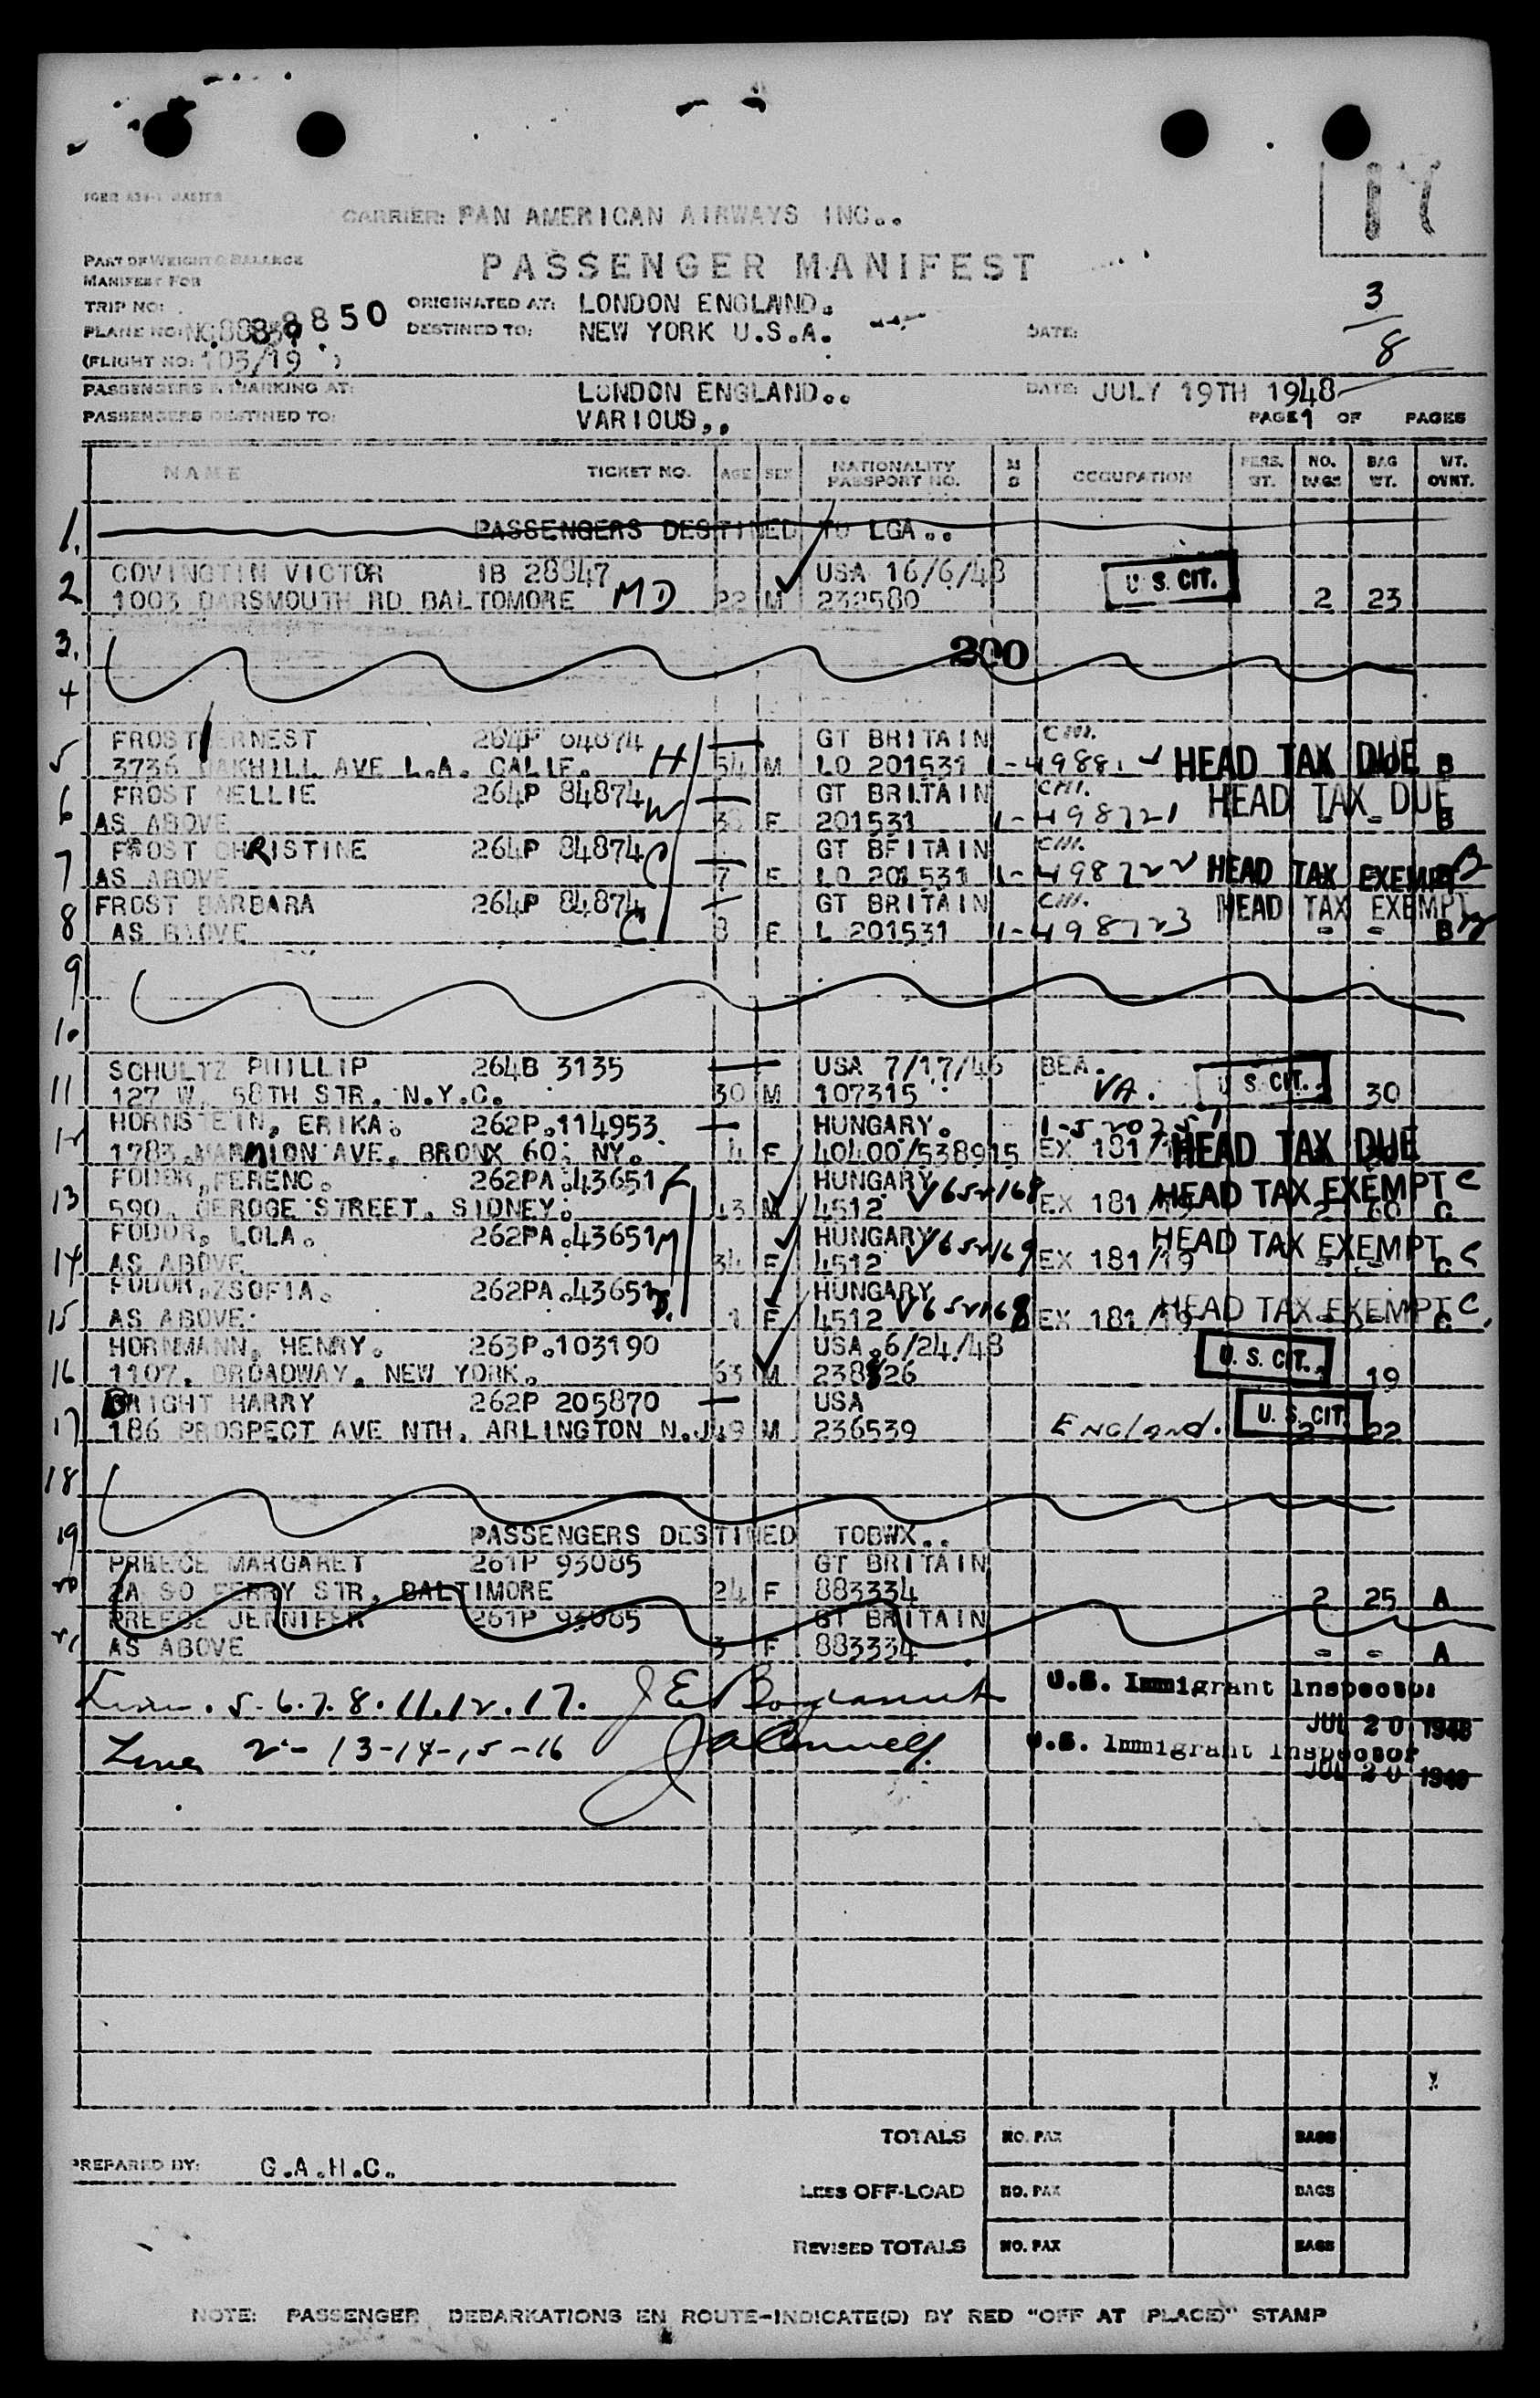 17
CARRIER: PAN AMERICAN AIRWAYS INC..
PART OF WEIGHT & BALANCE
MANIFEST FOR
PASSENGER MANIFEST
TRIP NO:
ORIGINATED AT: LONDON ENGLAND.
3/8
PLANE NO: 8850
DESTINED TO: NEW YORK U.S.A.
DATE:
(FLIGHT NO: 103/19 )
PASSENGERS EMBARKING AT: LONDON ENGLAND.. DATE: JULY 19TH 1948
PASSENGERS DESTINED TO: VARIOUS,, PAGE 1 OF PAGES
NAME TICKET NO. AGE SEX NATIONALITY PASSPORT NO. M S OCCUPATION PERS. WT. NO. BAGS BAG WT. WT. OVNT.
1. PASSENGERS DESTINED TO LGA..
COVINGTIN VICTOR IB 28947 USA 16/6/48 U S. CIT.
2 1003 DARSMOUTH RD BALTOMORE MD 22 M 232580 2 23
3. 200
4
FROST ERNEST 264P 84874 GT BRITAIN
5 3736 OAKHILL AVE L.A. CALIF. H 54 M LO 201531 HEAD TAX DUE B
FROST NELLIE 264P 84874 W GT BRITAIN HEAD TAX DUE
6 AS ABOVE F 201531 1-498721 - B
FROST CHRISTINE 264P 84874 C GT BRITAIN
7 AS ABOVE 7 F LO 201531 1-498722 HEAD TAX EXEMPT B
FROST BARBARA 264P 84874 GT BRITAIN HEAD TAX EXEMPT
8 AS BAOVE C 8 F L 201531 1-498723 - - B
9
10
SCHULTZ PHILLIP 264B 3135 USA 7/17/46 BEA.
11 127 W. 58TH STR. N.Y.C. 30 M 107315 VA. U S. CIT. 30
HORNSTEIN, ERIKA. 262P.114953 HUNGARY.
12 1783 MARMION AVE, BRONX 60, NY. 4 F 40400/538915 EX 181/ HEAD TAX DUE
FODOR, FERENC. 262PA.43651 HUNGARY
13 590. GEROGE STREET. SIDNEY. 43 M 4512 V652168 EX 181/19 HEAD TAX EXEMPT C
FODOR, LOLA. 262PA.43651 HUNGARY
14 AS ABOVE 34 F 4512 V652169 EX 181/19 HEAD TAX EXEMPT C
FODOR, ZSOFIA. 262PA.43651 HUNGARY
15 AS ABOVE. 1 F 4512 V652168 EX 181/19 HEAD TAX EXEMPT C
HORNMANN, HENRY. 263P.103190 USA.6/24/48
16 1107. BROADWAY. NEW YORK. 63 M U. S. CIT. 19
BRIGHT HARRY 262P 205870 USA
17 186 PROSPECT AVE NTH. ARLINGTON N.J. 49 M 236539 England. U. S. CIT. 2 22
18
19 PASSENGERS DESTINED TOBWX..
PREECE MARGARET 261P 93085 GT BRITAIN
20 2A SO FERRY STR, BALTIMORE 24 F 883334 2 25 A
PREECE JENNIFER 261P 93085 GT BRITAIN
21 AS ABOVE 3 F 883334 - - A
5-6.7.8.11.12.17. U.S. Immigrant Inspector
JUL 20 1948
Lines 2-13-14-15-16 U.S. Immigrant Inspector
JUL 20 1948
TOTALS NO. PAX BAGS
PREPARED BY: G.A.H.C.
LESS OFF-LOAD NO. PAX BAGS
REVISED TOTALS NO. PAX BAGS
NOTE: PASSENGER DEBARKATIONS EN ROUTE-INDICATE(D) BY RED "OFF AT (PLACE)" STAMP